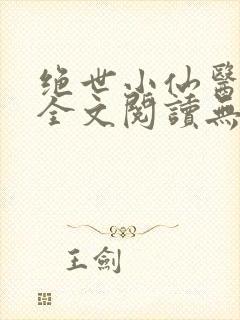 绝世小仙醫
全文閱讀無
王劍